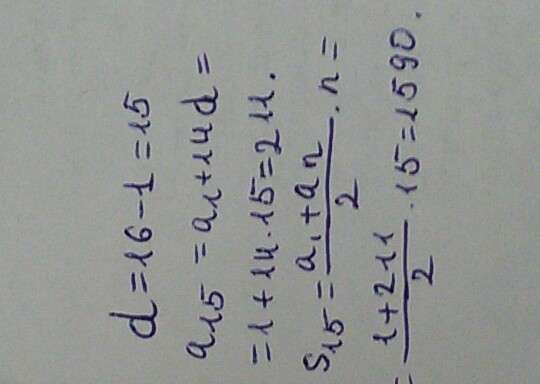 d=16-1=15
a₁₅=a₁+14d=
=1+14·15=211.
S₁₅=(a₁+aₙ)/2·n=
=(1+211)/2·15=1590.